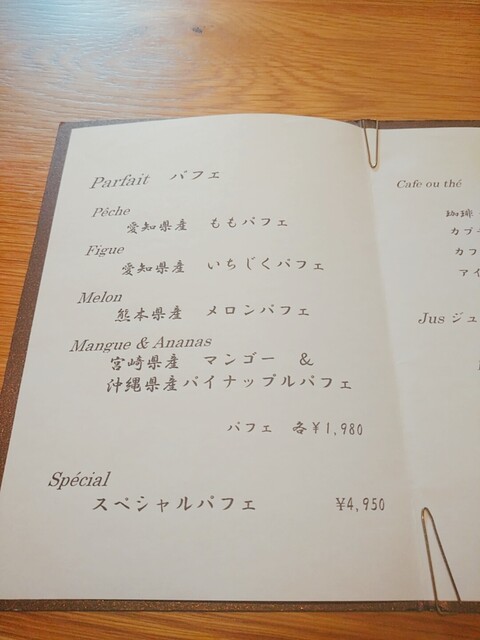 Parfait パフェ
Pêche
愛知県産 ももパフェ
Figue
愛知県産 いちじくパフェ
Melon
熊本県産 メロンパフェ
Mangue & Ananas
宮崎県産 マンゴー &
沖縄県産パイナップルパフェ
パフェ 各¥1,980
Spécial
スペシャルパフェ ¥4,950
Cafe ou thé
珈琲
カプ
カフ
アイ
Jus ジュ